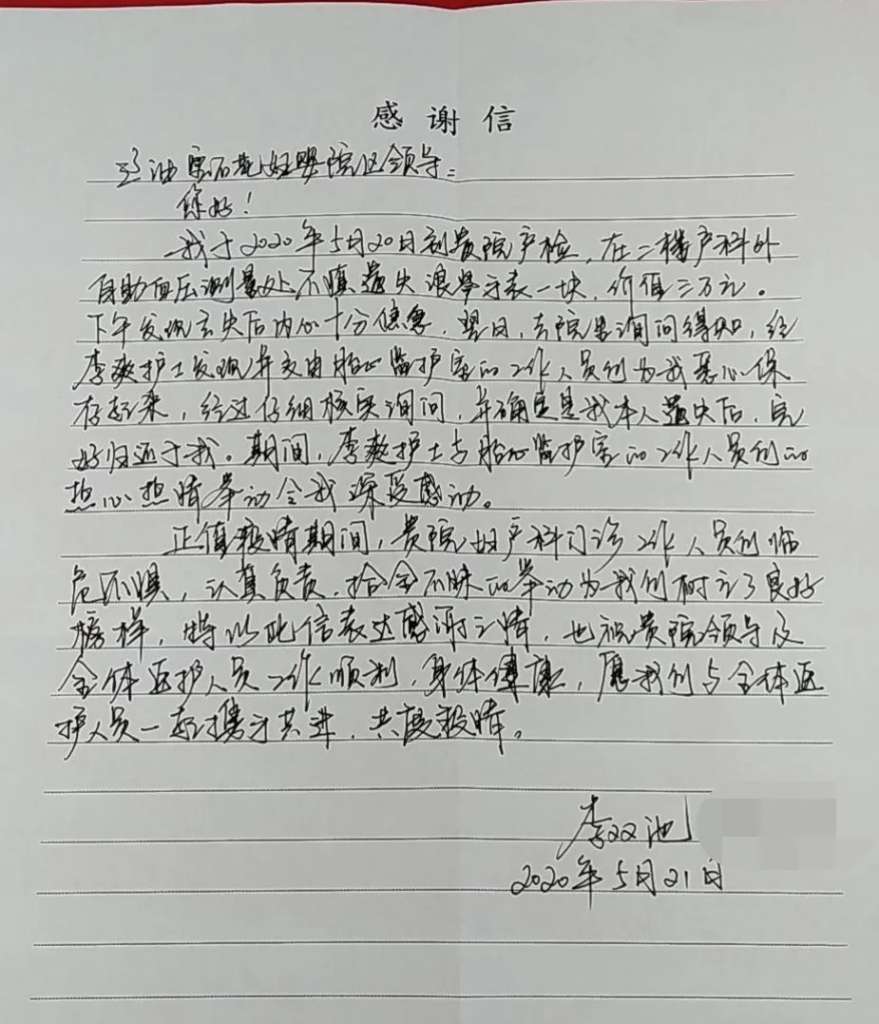 感谢信
江油宝石花妇婴院区领导:
您好!
我于2020年5月20日到贵院产检,在二楼产科外
自助血压测量处不慎遗失浪琴手表一块,价值二万元。
下午发现丢失后内心十分焦急,翌日,去院里询问得知,经
李爽护士发现并交由胎心监护室的工作人员们为我悉心保
存起来,经过仔细核实询问,并确定是我本人遗失后,完
好归还于我。期间,李爽护士与胎心监护室的工作人员们的
热心热情举动令我深受感动。
正值疫情期间,贵院妇产科门诊工作人员们临
危不惧,认真负责,拾金不昧的举动为我们树立了良好
榜样,特以此信表达感谢之情,也祝贵院领导及
全体医护人员工作顺利,身体健康,愿我们与全体医
护人员一起携手共进,共度疫情。
李双池
2020年5月21日